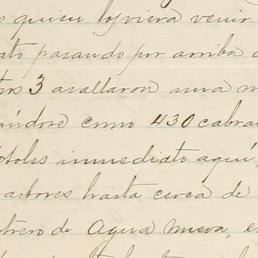 o quien los viera venir
ato pasando por arriba
tros 3 asaltaron una m
andose como 430 cabra
totoles inmediato aqui,
astores hasta cerca de
otrero de Agua nueva, e